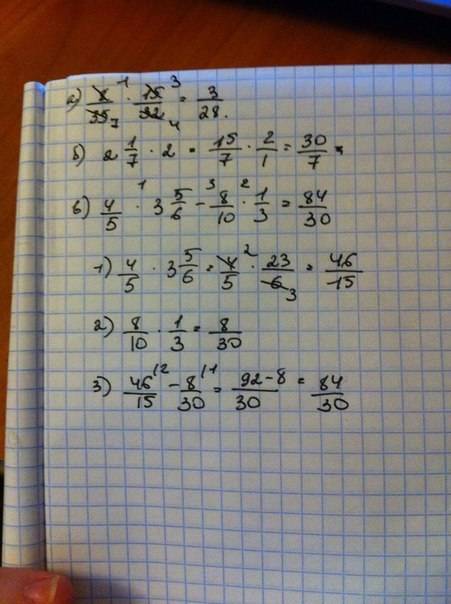 а) 8/35 7 · 15/32 4 1 3 = 3/28.
б) 2 1/7 · 2 = 15/7 · 2/1 = 30/7.
в) 4/5 ·1 3 5/6 -3 8/10 ·2 1/3 = 84/30
1) 4/5 · 3 5/6 = 4/5 2 · 23/6 3 = 46/15
2) 8/10 · 1/3 = 8/30
3) 46/15 |2 - 8/30 |1 = 92-8/30 = 84/30